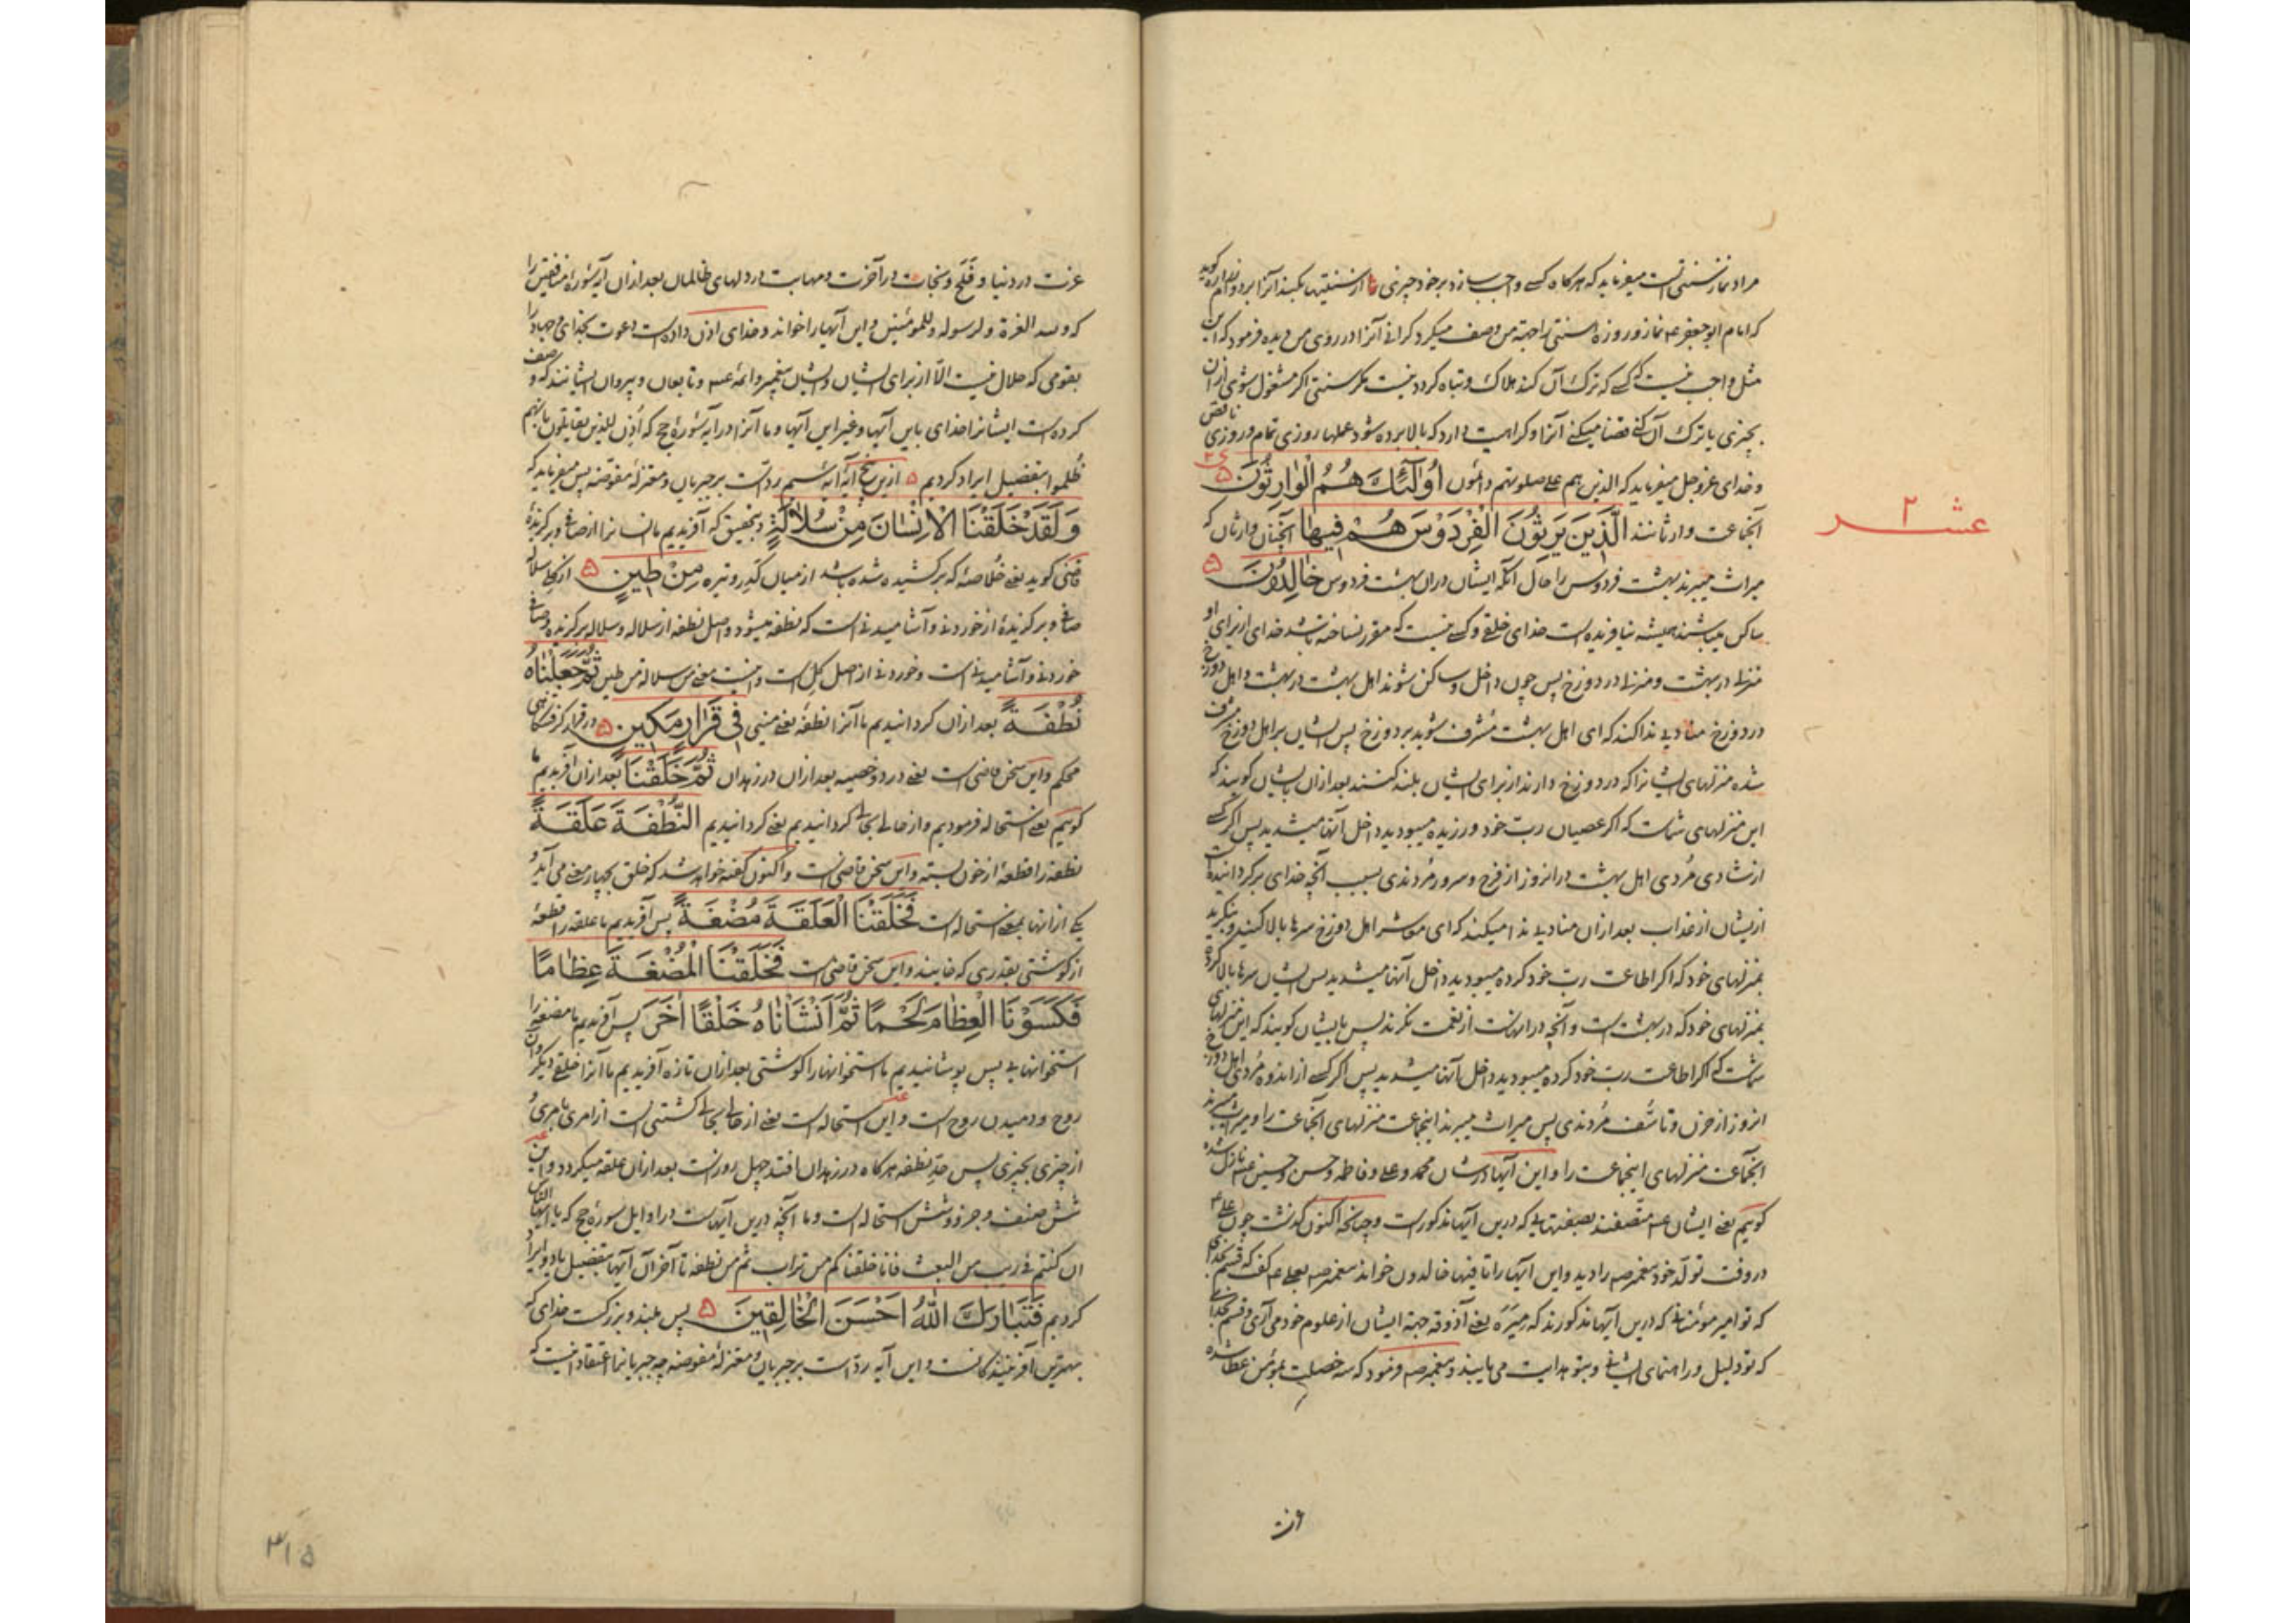 مراد نماز سنتی است میفرماید که هرگاه کسی واجب سازد بر خود چیزی را از سنتیها بکند آنرا بر دوام
که امام ابو جعفر ع نماز و روزه سنتی را جهة من وصف میکرد کرانی آنرا در روی من دیده فرمود که این
مثل واجب نیست که کسی که ترک آن کند هلاک و تباه کردد نیست مکر سنتی اکر مشغول شوی از آن
بچیزی یا ترک آن کنی قضا میکنی آنرا و کراهیت دارد که بالا برده شود عملها روزی تمام و روزی ناقص
و خدای عز و جل میفرماید که الذین هم علی صلوتهم دائمون أُولَٰئِكَ هُمُ الْوَارِثُونَ
عشر ۲
آنجماعت وارثانند الَّذِينَ يَرِثُونَ الْفِرْدَوْسَ هُمْ فِيهَا آنچنان وارثان که
میراث میبرند بهشت فردوس را حال آنکه ایشان در آن بهشت فردوس خَالِدُونَ
ساکن میباشند همیشه نیافریده است خدای خلقی و کسی نیست که مقرر نساخته باشد خدای از برای او
منزلی در بهشت و منزلی در دوزخ پس چون داخل و ساکن شوند اهل بهشت در بهشت و اهل دوزخ
در دوزخ منادیی ندا کند که ای اهل بهشت مشرف شوید بر دوزخ پس ایشان بر اهل دوزخ مشرف
شده منزلهای ایشانرا که در دوزخ دارند از برای ایشان بلند کنند بعد از آن بایشان کویند که
این منزلهای شماست که اکر عصیان رب خود ورزیده میبودید داخل آنها میشدید پس اکر کسی
از شادی مردی اهل بهشت در آنروز از فرح و سرور مردندی بسبب آنچه خدای برکردانیده است
ازیشان از عذاب بعد از آن منادیی ندا میکند که ای معاشر اهل دوزخ سرها بالا کنید و بنکرید
بمنزلهای خود که اکر اطاعت رب خود کرده میبودید داخل آنها میشدید پس ایشان سرها بالا کرده
بمنزلهای خود که در بهشت است و آنچه در آنهاست از نعمت نکرند پس بایشان کویند که این منزلهای
شماست که اکر اطاعت رب خود کرده میبودید داخل آنها میشدید پس اکر کسی از اندوه مردی اهل دوزخ
آنروز از حزن و تاسف مردندی پس میراث میبرند اینجماعت منزلهای آنجماعت را و میراث میبرند
آنجماعت منزلهای اینجماعت را و این آیها در شان محمد و علی و فاطمه و حسن و حسین ع نازل شده
کویم یعنی ایشان ع متصفند بصفتهایی که درین آیها مذکورست و چنانچه اکنون کذشت چون علی ع
در وقت تولد خود پیغمبر ص را دید و این آیها را تا فیها خالدون خواند پیغمبر ص بعلی ع کفت که قسم بخدای
که تو امیر مؤمنانی که درین آیها مذکورند که میره یعنی آذوقه جهة ایشان از علوم خود می آری و قسم بخدای
که تو دلیل و راهنمای ایشانی و بتو هدایت می یابند و پیغمبر ص فرمود که سه خصلت بمؤمن عطا شده
عزت
عزت در دنیا و فلح و نجات در آخرت و مهابت در دلهای ظالمان بعد از آن آیه سوره منافقین را
که و لله العزة و لرسوله و للمومنین و این آیها را خواند و خدای اذن داده است دعوت بخدای و جهاد را
بقومی که حلال نیست الا از برای ایشان و ایشان پیغمبر و ائمه ع و تابعان و پیروان ایشانند که وصف
کرده است ایشانرا خدای باین آیها و غیر این آیها و ما آنرا در آیه سوره حج که أذن للذین یقاتلون بانهم
ظلموا بتفضیل ایراد کردیم ازین پنج آیه آیه ششم رد است بر جبریان و معتزله مفوضه پس میفرماید که
وَلَقَدْ خَلَقْنَا الْإِنْسَانَ مِنْ سُلَالَةٍ و بتحقیق که آفریدیم ما انسانرا از صافی و برکزیده
قاضی کوید یعنی خلاصهٔ که برکشیده شده باشد از میان کدر و تیره مِنْ طِينٍ از کل سلاله
صافی و برکزیده از خوردنی و آشامیدنی است که نطفه میشود و اصل نطفه از سلاله و سلاله برکزیده و صافی
خوردنی و آشامیدنی است و خوردنی از اصل کل است و اینست معنی من سلالة من طین ثُمَّ جَعَلْنَاهُ
نُطْفَةً بعد از آن کردانیدیم ما آنرا نطفه یعنی منیی فِي قَرَارٍ مَكِينٍ در قرارکرفتنکاهی
محکم و این سخن قاضی است یعنی در دو خصیه بعد از آن در زهدان ثُمَّ خَلَقْنَا بعد از آن آفریدیم ما
کویم یعنی استحاله فرمودیم و از حالی بحالی کردانیدیم یعنی کردانیدیم النُّطْفَةَ عَلَقَةً
نطفه را قطعهٔ از خون بسته و این سخن قاضی است و اکنون کفته خواهد شد که خلق بچهار معنی می آید و
یکی از آنها بمعنی استحاله است فَخَلَقْنَا الْعَلَقَةَ مُضْغَةً پس آفریدیم ما علقه را قطعهٔ
از کوشتی بقدری که خایند و این سخن قاضی است فَخَلَقْنَا الْمُضْغَةَ عِظَامًا
فَكَسَوْنَا الْعِظَامَ لَحْمًا ثُمَّ أَنْشَأْنَاهُ خَلْقًا آخَرَ پس آفریدیم ما مضغه را
استخوانهایی پس پوشانیدیم ما استخوانها را کوشتی بعد از آن تازه آفریدیم ما آنرا خلقی دیکر و آن
روح و دمیدن روح است و این استحاله است یعنی از حالی بحالی کشتنی است از امری بامری و
از چیزی بچیزی پس حد نطفه هرکاه در زهدان افتد چهل روزست بعد از آن علقه میکردد و این
شش صنف و جزو و شش استحاله است و ما آنچه درین آیهاست در اوایل سوره حج که یا ایها الناس
ان کنتم فی ریب من البعث فانا خلقناکم من تراب ثم من نطفة تا آخر آن آیها بتفضیل یاد و ایراد
کردیم فَتَبَارَكَ اللَّهُ أَحْسَنَ الْخَالِقِينَ پس بلند و بزرکست خدای که
بهترین آفرینندکانست و این آیه رد است بر جبریان و معتزله مفوضه چه جبریانرا اعتقاد اینست که
۳۱۵